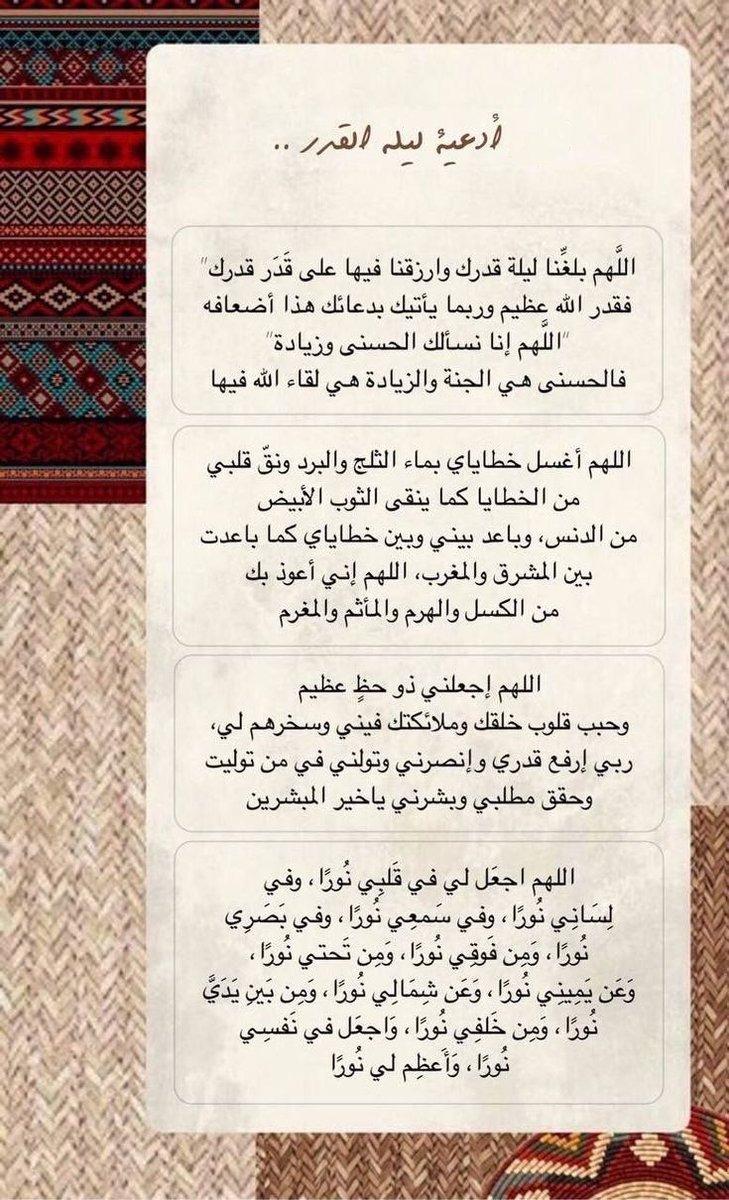 أدعية ليله القدر ..
اللَّهم بلغِّنا ليلة قدرك وارزقنا فيها على قَدَر قدرك"
فقدر الله عظيم وربما يأتيك بدعائك هذا أضعافه
"اللَّهم إنا نسألك الحسنى وزيادة"
فالحسنى هي الجنة والزيادة هي لقاء الله فيها
اللهم أغسل خطاياي بماء الثلج والبرد ونقّ قلبي
من الخطايا كما ينقى الثوب الأبيض
من الدنس، وباعد بيني وبين خطاياي كما باعدت
بين المشرق والمغرب، اللهم إني أعوذ بك
من الكسل والهرم والمأثم والمغرم
اللهم إجعلني ذو حظٍ عظيم
وحبب قلوب خلقك وملائكتك فيني وسخرهم لي،
ربي إرفع قدري وإنصرني وتولني في من توليت
وحقق مطلبي وبشرني ياخير المبشرين
اللهم اجعَل لي في قَلبِي نُورًا ، وفي
لِسَانِي نُورًا ، وفي سَمعِي نُورًا ، وفي بَصَرِي
نُورًا ، وَمِن فَوقِي نُورًا ، وَمِن تَحتي نُورًا ،
وَعَن يَمِينِي نُورًا ، وَعَن شِمَالِي نُورًا ، وَمِن بَينِ يَدَيَّ
نُورًا ، وَمِن خَلفِي نُورًا ، وَاجعَل في نَفسِي
نُورًا ، وَأَعظِم لي نُورًا